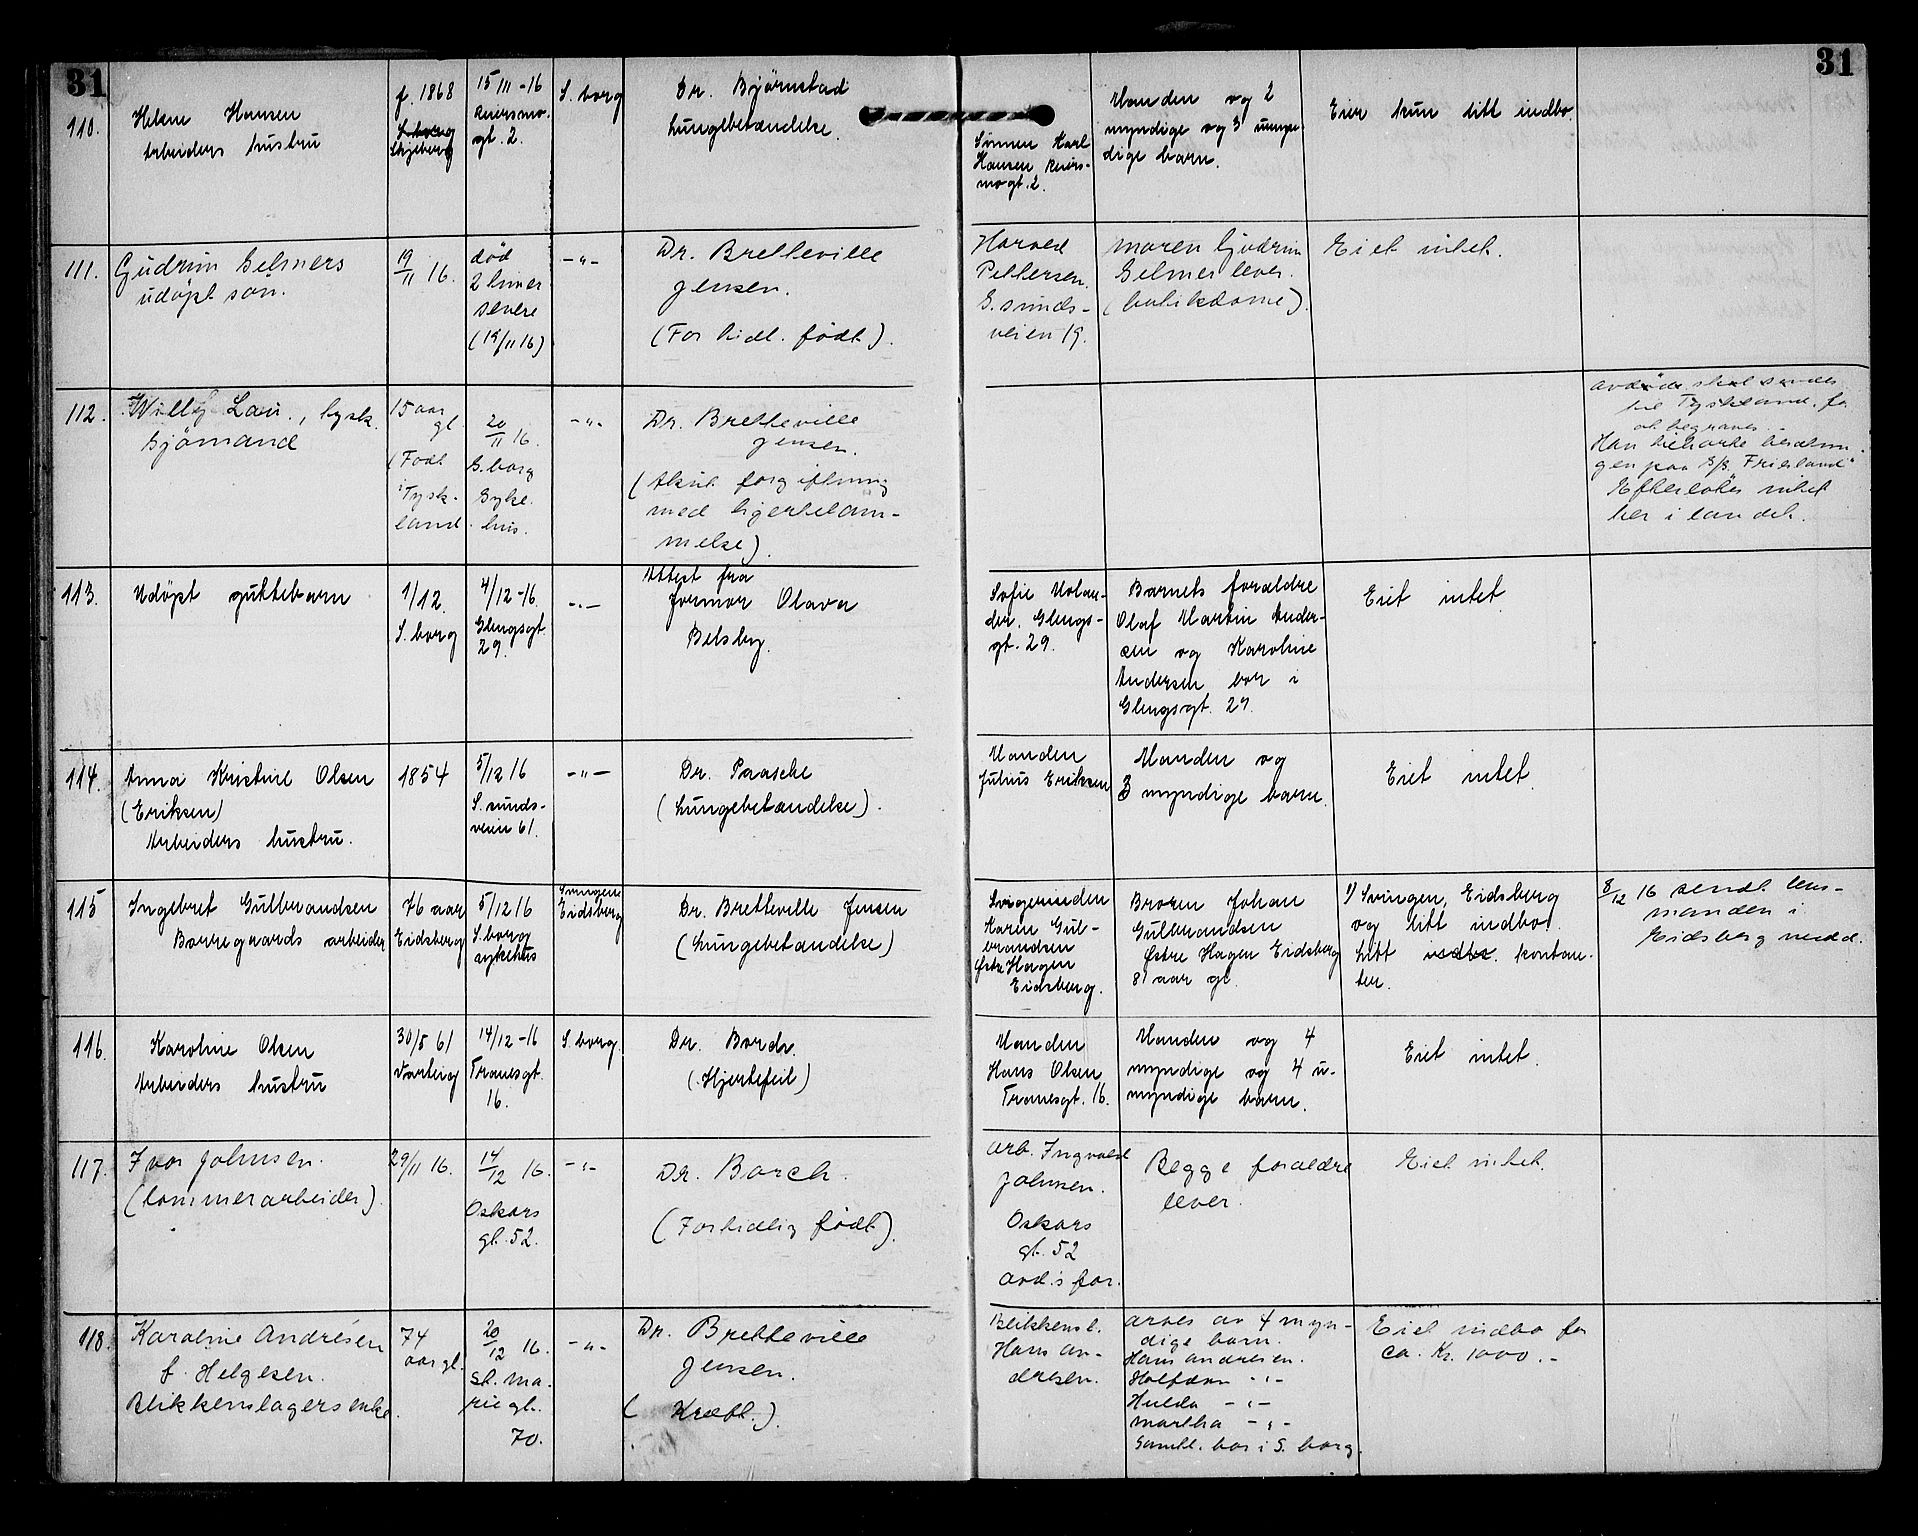 31
31
110.
Helene Hansen
Arbeiders hustru
f. 1868
Skjeberg
15/11-16
Reiersmo.
gt. 2.
S. borg
Dr. Bjørnstad
Lungebetændelse.
Sønnen Karl
Hansen Reiers-
mogt. 2.
Manden og 2
myndige og 3 umyn-
dige barn.
Eier kun litt indbo.
111.
Gudrun Selmers
udøpt søn.
19/11 16.
død
2 timer
senere
(19/11 16)
-"-
Dr. Bretteville
Jensen.
(For tidl. født).
Harald
Pettersen.
S. sunds-
veien 19.
Moren Gudrun
Selmer lever.
(butikdame).
Eiet intet.
112.
Willy Lau, tysk
sjömand
15 aar
gl.
(Født
i Tysk-
land
20/11 16.
S. borg
Syke.
hus.
-"-
Dr. Bretteville
Jensen.
(Akut forgiftning
med hjertelam-
melse).
avdöde skal sendes
til Tyskland for
at begraves.
Han tilhørte besætnin-
gen paa S/S "Friesland"
Efterlater intet
her i landet.
113.
Udøpt guttebarn
1/12.
S. borg
4/12-16.
Glengsgt.
29.
-"-
Attest fra
Jormor Olava
Belsby.
Sofie Molan-
der. Glengs-
gt. 29.
Barnets forældre
Olaf Martin Ander-
sen og Karoline
Andersen bor i
Glengsgt. 29.
Eiet intet.
114.
Anna Kristine Olsen
(Eriksen)
Arbeiders hustru.
1854
5/12 16
S. sunds-
veien 61.
-"-
Dr. Paasche
(Lungebetændelse).
Manden
Julius Eriksen
Manden og
3 myndige barn.
Eiet intet.
115
Ingebret Gulbrandsen
Borregaards arbeider
76 aar
Eidsberg
5/12 16
S. borg
sykehus
Svingen
Eidsberg
Dr. Bretteville Jensen
(Lungebetændelse)
Svigerinden
Karen Gul-
brandsen
Østre Hagen
Eidsberg.
Broren Johan
Gulbrandsen
Østre Hagen Eidsberg
81 aar gl.
1) Svingen, Eidsberg
og litt indbo.
Litt indbo. kontan-
ter.
8/12 16 sendt lens-
manden i
Eidsberg medd.
116.
Karoline Olsen
Arbeiders hustru
30/5 61
Varteig
14/12-16
Tranesgt.
16.
S. borg.
Dr. Borch.
(Hjertefeil)
Manden
Hans Olsen
Tranesgt. 16.
Manden og 4
myndige og 4 u-
myndige barn.
Eiet intet.
117.
Ivar Johnsen.
(tømmerarbeider).
29/11 16.
14/12 16.
Oskars
gt. 52.
-"-
Dr. Borch.
(Fortidlig født).
arb. Ingvald
Johnsen.
Oskars
gt. 52
avd.s far.
Begge forældre
lever.
Eiet intet.
118.
Karoline Andresen
f. Helgesen.
Blikkenslagers enke.
74
aar gl.
20/12 16.
St. Ma-
riegt.
70.
-"-
Dr. Bretteville
Jensen.
(Kræft.).
Blikkensl.
Hans An-
dresen.
arves av 4 myn-
dige barn.
Hans Andresen.
Halfdan -"-
Hulda -"-
Martha -"-
Samtl. bor i S. borg.
Eiet indbo for
ca. Kr. 1000.-